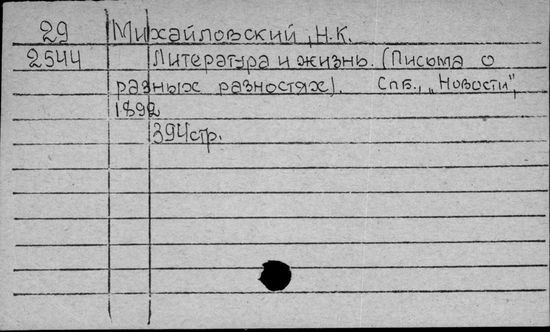 29 Михайловский, Н.К.
2544 Литература и жизнь. (Письма о
разных разностях). Спб., „Новости",
1892
394стр.